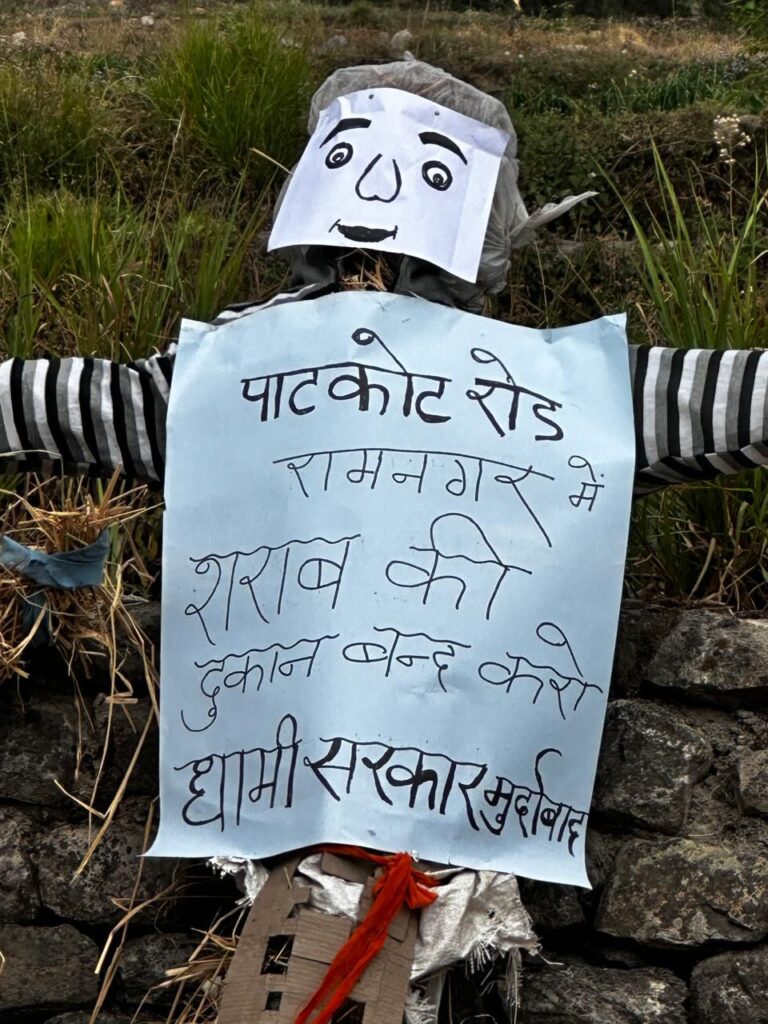 पाटकोट रोड
रामनगर में
शराब की
दुकान बन्द करो
धामी सरकार मुर्दाबाद